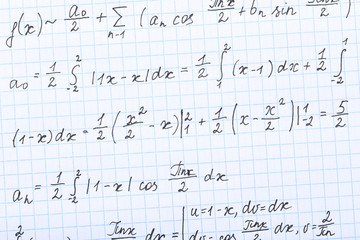 f(x) ~ a₀/2 + Σ n-1 (aₙ cos πnx/2 + bₙ sin πnx/2)
a₀ = 1/2 ∫₋₂² |1x - x|dx = 1/2 ∫₁² (x-1) dx + 1/2 ∫₋₂¹
(1-x)dx = 1/2 (x²/2 - x)|₁² + 1/2 (x - x²/2)|₋₂¹ = 5/2
aₙ = 1/2 ∫₋₂² |1-x| cos πnx/2 dx
πnx/2 dx = | u = 1-x, dv = dx
dv = cos πnx/2 dx, v = 2/πn